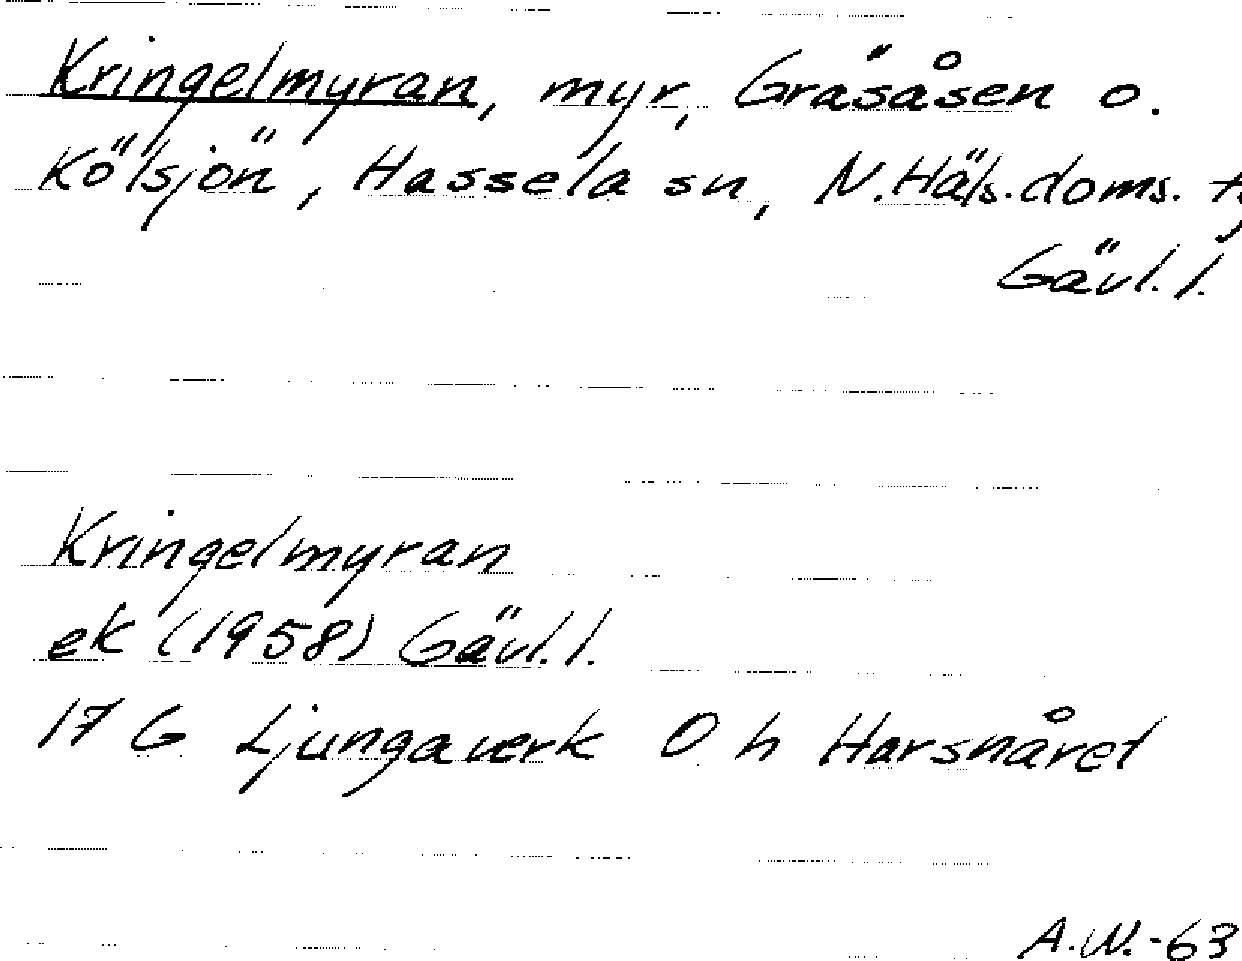 Kringelmyran, myr, Gräsåsen o.
Kölsjön, Hassela sn, N.Häls.doms.
Gävl.l.
Kringelmyran
ek (1958) Gävl.l.
17 G Ljungaverk O h Harsnåret
A.W.-63